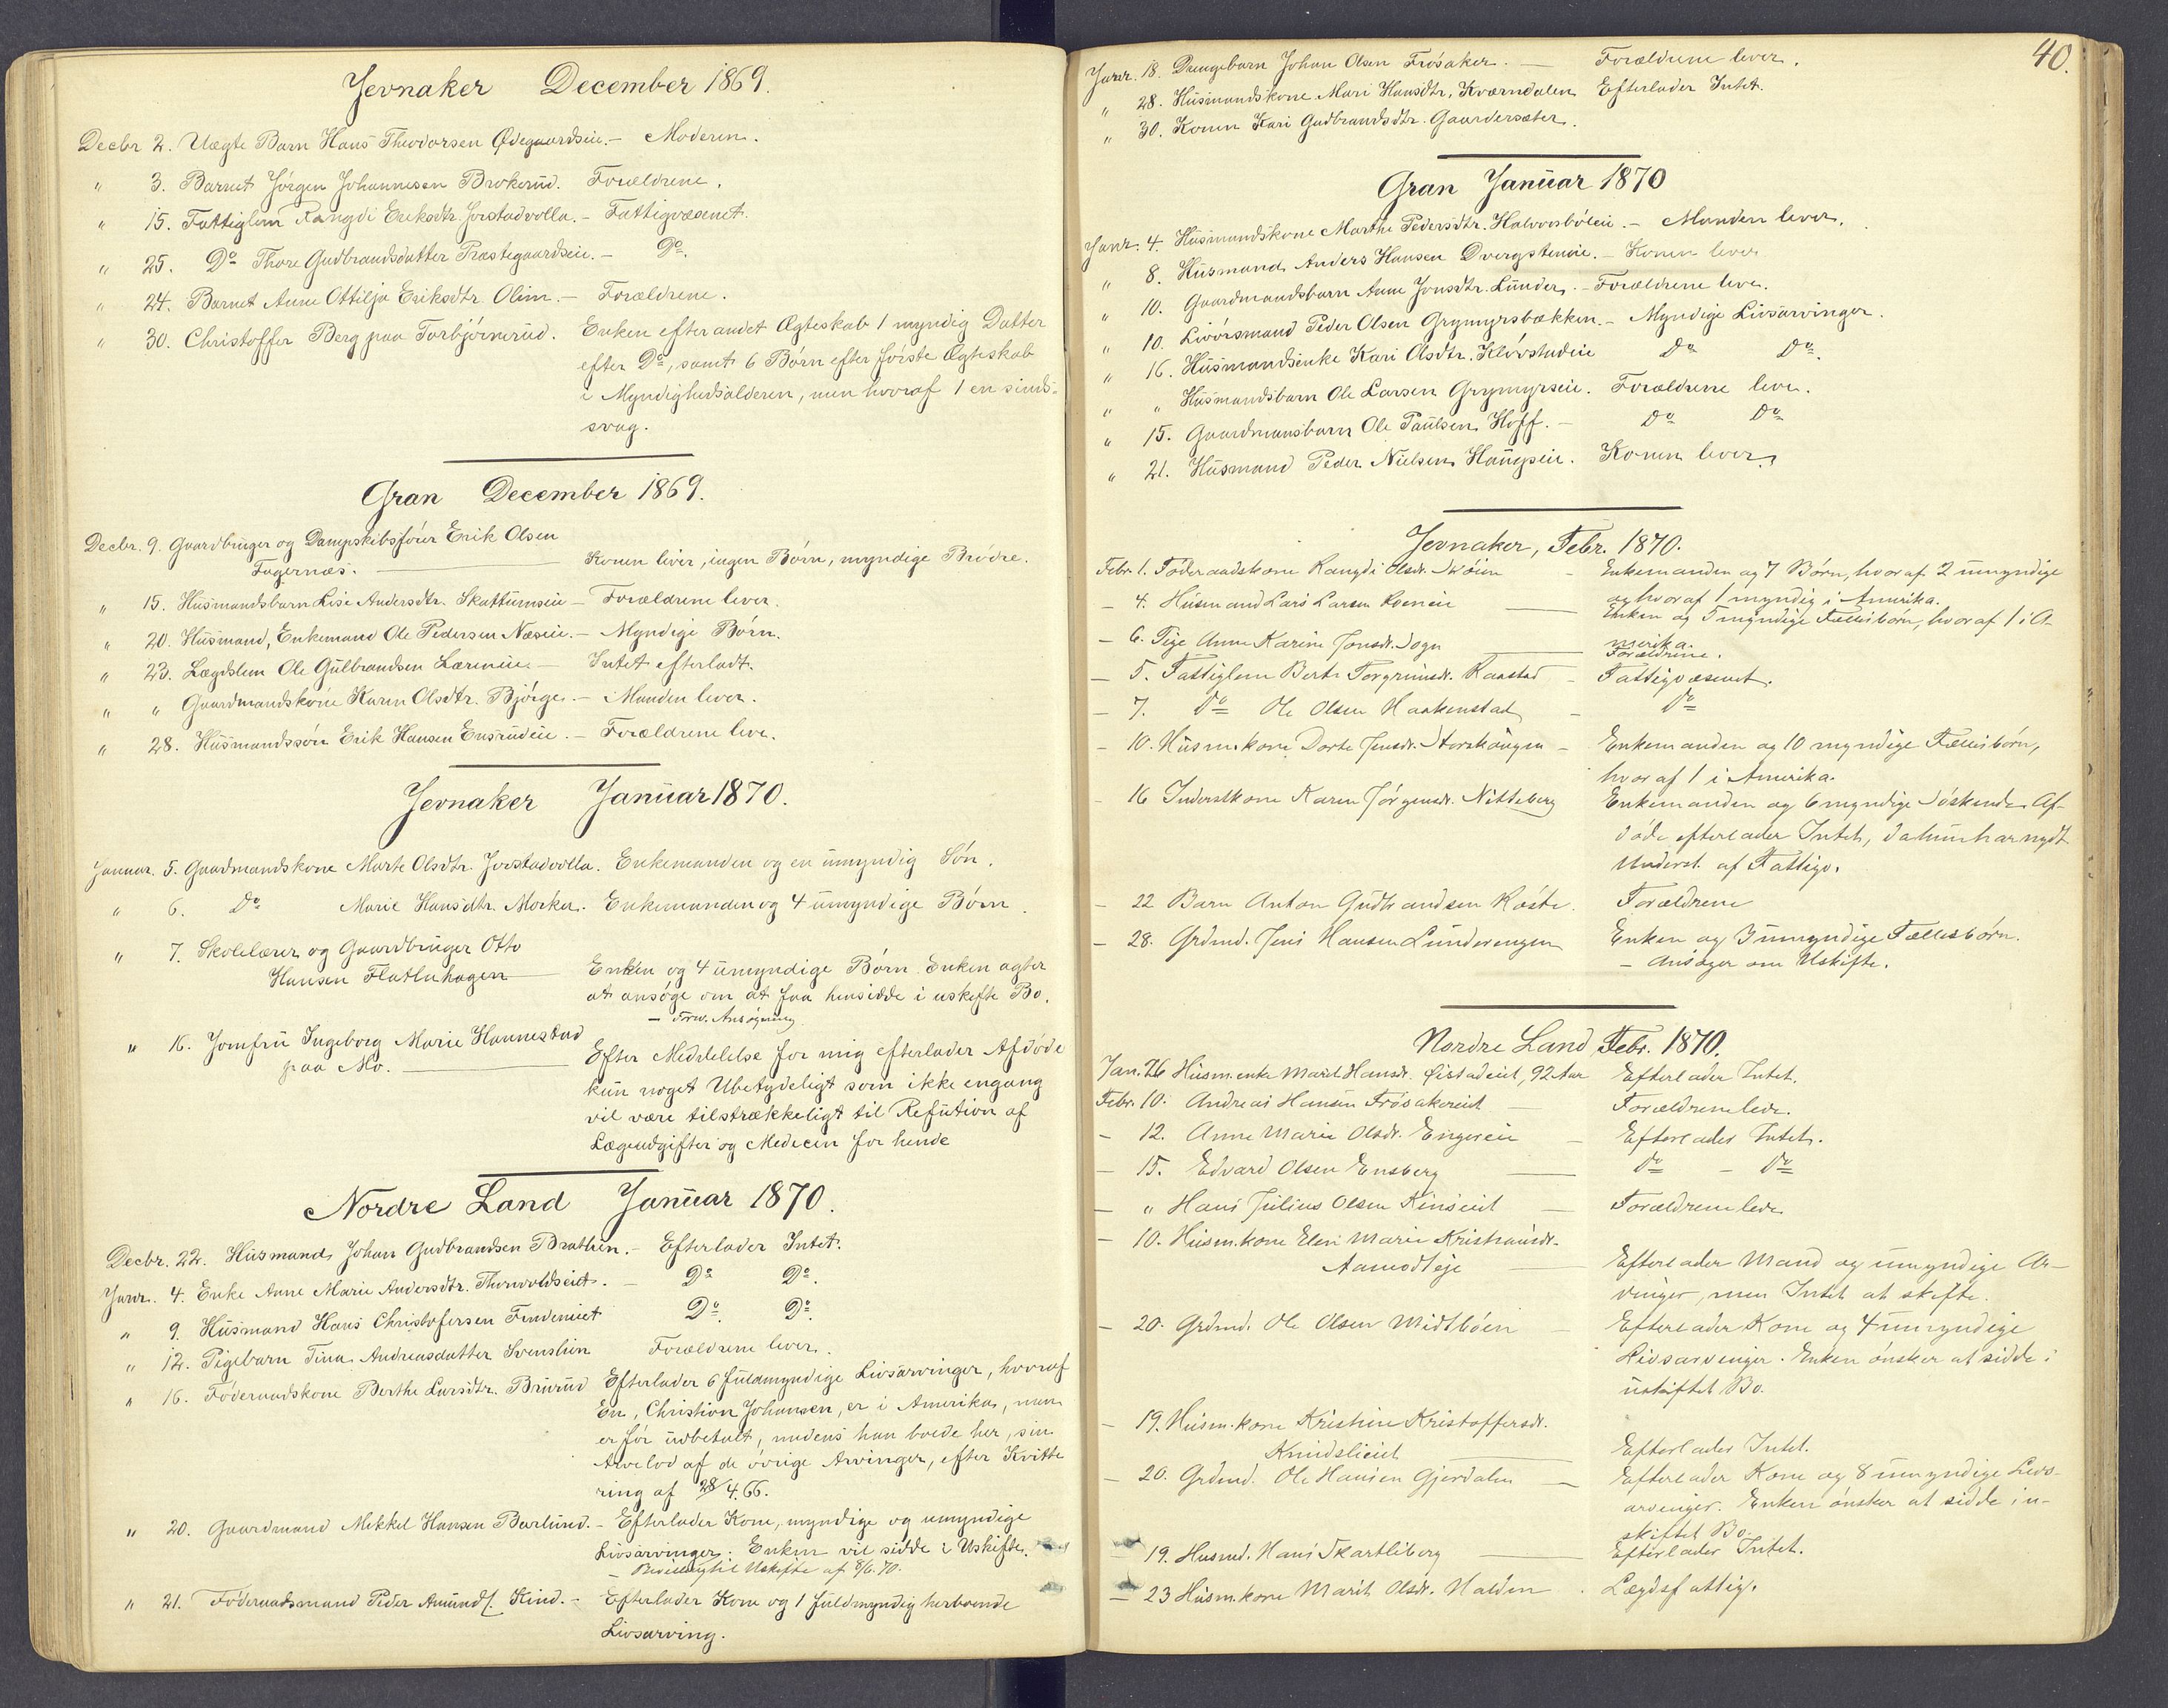 Jevnaker December 1869.
Decbr 2. Uægte Barn Hans Theodorsen Ødegaardseie. - Moderen.
" 3. Barnet Jörgen Johannesen Brokerud. Forældrene.
" 15. Fattiglem Rangdi Eriksdtr. Jorstadvolla. - Fattigvæsenet.
" 25. Do Thore Gudbrandsdatter Præstegaardseie. - Do.
" 24. Barnet Anne Ottilja Eriksdtr. Olim. - Forældrene.
" 30. Christoffer Berg paa Torbjörnerud. Enken efter andet Ægteskab 1 myndig Datter
efter Do, samt 6 Börn efter förste Ægteskab
i Myndighedsalderen, men hvoraf 1 en sinds-
svag.
Gran December 1869.
Decbr. 9. Gaardbruger og Dampskibsförer Erik Olsen
Fagernæs. - Konen lever, ingen Börn, myndige Brödre.
" 15. Husmandsbarn Lise Andersdtr. Skattumseie - Forældrene lever.
" 20. Husmand, Enkemand Ole Pedersen Næseie. - Myndige Börn.
" 23. Lægdslem Ole Gulbrandsen - Intet efterladt.
" " Gaardmandskone Karen Olsdtr. Björge. - Manden lever.
" 28. Husmandssön Erik Hansen Ensrudeie. - Forældrene leve.
Jevnaker Januar 1870.
Januar. 5. Gaardmandskone Marte Olsdtr. Jorstadvolla. Enkemanden og en umyndig Sön.
" 6. Do Marie Hansdtr. Morken. Enkemanden og 4 umyndige Börn.
" 7. Skolelærer og Gaardbruger Otto
Hansen Flatlahagen - Enken og 4 umyndige Börn. Enken agter
at ansöge om at faa hensidde i uskiftet Bo.
- Ansögning
" 16. Jomfru Ingeborg Marie Hannestad
paa Mo. - Efter Meddelelse for mig efterlader Afdöde
kun noget Ubetydeligt som ikke engang
vil være tilstrækkeligt til Refution af
Lægeudgifter og Medecin for hende
Nordre Land Januar 1870.
Decbr. 22. Husmand Johan Gudbrandsen Brathen. - Efterlader Intet.
Janr. 4. Enke Anne Marie Andersdtr. Thorvoldseiet. - Do Do.
" 9. Husmand Hans Christofersen Do. Do.
" 12. Pigebarn Tina Andreasdatter Svenslien Forældrene lever.
" 16. Föderaadskone Berthe Larsdtr. Brurud Efterlader 6 fuldmyndige Livsarvinger, hvoraf
En, Christian Johansen, er i Amerika, men
er för udbetalt, medens han boede her, sin
Arvelod af de övrige Arvinger, efter Kvitte
ring af 28/4. 66.
" 20. Gaardmand Mekkel Hansen Barlund. - Efterlader Kone, myndige og umyndige
Livsarvinger. Enken vil sidde i Uskifte.
- Bevilling til Uskifte af 8/6. 70.
" 21. Föderaadsmand Peder Amunds. Kind. - Efterlader Kone og 1 fuldmyndig herboende
Livsarving.
40.
Janr. 18. Drengebarn Johan Olsen Frösaker. - Forældrene lever.
" 28. Husmandskone Mari Hansdtr. Kværndalen Efterlader Intet.
" 30. Konen Kari Gudbrandsdtr. Gaardersæter.
Gran Januar 1870
Janr. 4. Husmandskone Marthe Pedersdtr. Halvorsböleie. - Manden lever.
" 8. Husmand Anders Hansen Dvergsteneie. - Konen lever
" 10. Gaardmandsbarn Anne Jonsdtr. Lunder. - Forældrene leve.
" 10. Livörsmand Peder Olsen Grymyrsbækken. - Myndige Livsarvinger.
" 16. Husmandsenke Kari Olsdtr. Klövstadeie Do Do.
" " Husmandsbarn Ole Larsen Grymyrseie. Forældrene leve.
" 15. Gaardmansbarn Ole Paulsen Hoff. - Do Do
" 21. Husmand Peder Nielsen Haugseie. Konen lever.
Jevnaker, Febr. 1870.
Febr. 1. Föderaadskone Rangdi Olsdr. Sköien - Enkemanden og 7 Börn, hvoraf 2 umyndige
og hvoraf 1 myndig i Amerika.
- 4. Husmand Lars Larsen - Enken og 5 myndige Fællesbörn, hvoraf 1 i A-
merika.
- 6. Pige Anne Karine Jonsdr. Sogn - Forældrene.
- 5. Fattiglem Berte Torgrimsdr. Raastad - Fattigvæsenet.
- 7. Do Ole Olsen Haakenstad - Do
- 10. Husm.kone Dorte Jensdr. Storskaugen - Enkemanden og 10 myndige Fællesbörn,
hvoraf 1 i Amerika.
- 16 Inderstkone Karen Jörgensdr. Nitteberg Enkemanden og 6 myndige Söskende. Af-
döde efterlader Intet, da hun har nydt
Underst. af Fattigv.
- 22 Barn Anton Gudbrandsen Röste. Forældrene
- 28. Grdmd. Jens Hansen Lunderengen Enken og 3 umyndige Fællesbörn.
- Ansöger om Uskifte.
Nordre Land Febr. 1870.
Jan. 26 Husm.enke Marit Hansdr. Öistadeiet, 92 Aar Efterlader Intet.
Febr. 10. Andreas Hansen Frösakereiet - Forældrene leve.
- 12. Anne Marie Olsdr. Engereie - Efterlader Intet.
- 15. Edvard Olsen Ensberg - Do - Do
- " Hans Julius Olsen Kinseiet - Forældrene leve
- 10. Husm.kone Eleni Marie Kristiansdr.
Aamodteje - Efterlader Mand og umyndige Ar-
vinger, men Intet at skifte.
- 20. Grdmd. Ole Olsen Midtböen - Efterlader Kone og 4 umyndige
Livsarvinger. Enken önsker at sidde i
uskiftet Bo.
- 19. Husm.kone Kristine Kristoffersdr.
Knudslieiet - Efterlader Intet.
- 20. Grdmd. Ole Hansen Gjerdalen - Efterlader Kone og 8 umyndige Livs-
arvinger. Enken önsker at sidde i u-
skiftet Bo.
- 19. Husmd. Hans Skartliberg - Efterlader Intet.
- 23 Husm.kone Marit Olsdr. Halden. Lægdsfattig.